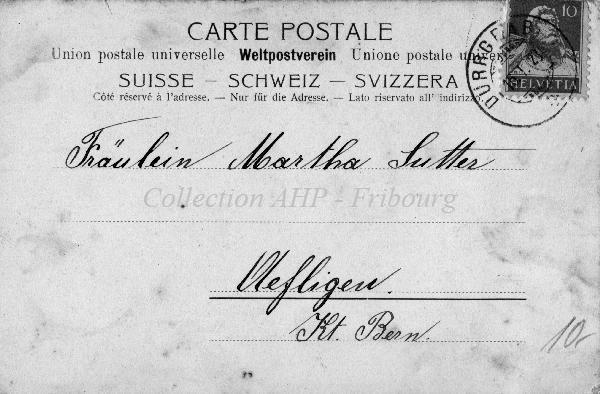 CARTE POSTALE
Union postale universelle Weltpostverein Unione postale
SUISSE – SCHWEIZ – SVIZZERA
Côté réservé à l'adresse. — Nur für die Adresse. — Lato riservato all' indirizzo.
10
HELVETIA
Fräulein Martha Sutter
Collection AHP - Fribourg
Aefligen.
Kt. Bern.
10-